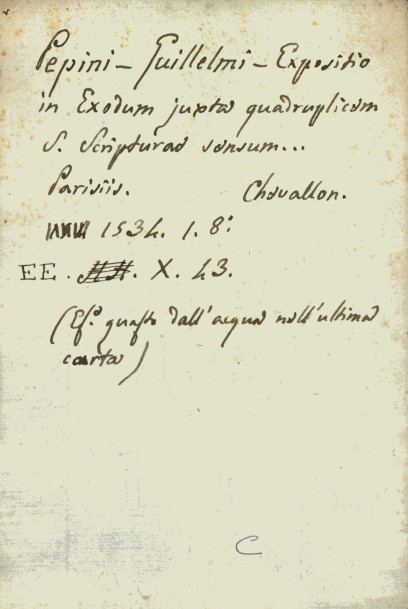 Pepini - Guillelmi - Expositio
in Exodum juxta quadruplicem
S. Scripturae sensum...
Parisiis. Chevallon.
1534. 1. 8:
EE. X. 43.
(Es.e guasto dall'acqua nell'ultima
carta)
C